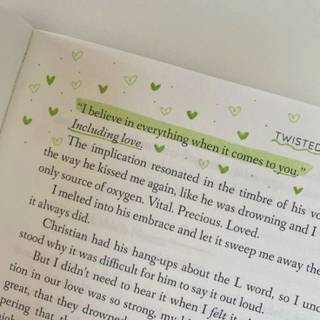 TWISTED
"I believe in everything when it comes to you."
Including love.
The implication resonated in the timbre of his
the way he kissed me again, like he was drowning and I
only source of oxygen. Vital. Precious. Loved.
I melted into his embrace and let it sweep me away the
it always did.
Christian had his hang-ups about the L word, so I
stood why it was difficult for him to say it out loud.
But I didn't need to hear it when I felt it
tion in our love was so strong, my
great, that they drowned
pering that the